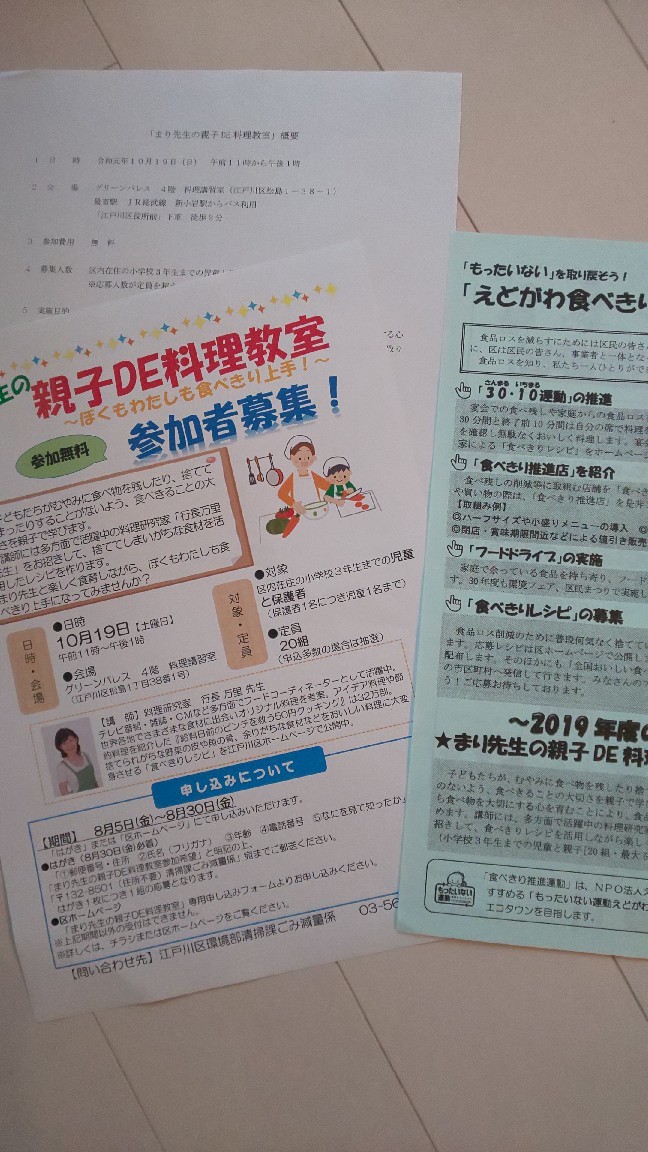 「まり先生の親子DE料理教室」概要
1 日 時 令和元年10月19日（日） 午前11時から午後1時
2 会 場 グリーンパレス 4階 料理講習室（江戸川区松島1－38－1）
最寄駅 JR総武線 新小岩駅からバス利用
「江戸川区役所前」下車 徒歩3分
3 参加費用 無 料
4 募集人数 区内在住の小学校3年生までの児童
※応募人数が定員を超
5 実施目的
る心
生の
親子DE料理教室
～ぼくもわたしも食べきり上手！～
参加無料
参加者募集！
子どもたちがむやみに食べ物を残したり、捨てて
しまったりすることがないよう、食べきることの大
さを親子で学びます。
講師には多方面で活躍中の料理研究家「行長万里
先生」をお招きして、捨ててしまいがちな食材を活
用したレシピを作ります。
まり先生と楽しく食育しながら、ぼくもわたしも食
べきり上手になってみませんか？
日時・会場
●日時
10月19日【土曜日】
午前11時～午後1時
●会場
グリーンパレス 4階 料理講習室
（江戸川区松島1丁目38番1号）
対象・定員
●対象
区内在住の小学校3年生までの児童
と保護者
（保護者1名につき児童1名まで）
●定員
20組
（申込多数の場合は抽選）
【講 師】料理研究家 行長 万里 先生
テレビ番組・雑誌・CMなど多方面でフードコーディネーターとして活躍中。
世界各地でさまざまな食材に出会いオリジナル料理を考案。アイデア料理や節
約料理を紹介した『給料日前のピンチを救う50円クッキング』は32万部。
捨てられがちな野菜の皮や魚の骨、余りがちな食材などをおいしい料理に大変
身させる「食べきりレシピ」を江戸川区ホームページで公開中。
申し込みについて
【期間】 8月5日(金)～8月30日(金)
「はがき」または「区ホームページ」にて申し込みいただけます。
●はがき（8月30日(金)必着）
「①郵便番号・住所 ②氏名（フリガナ） ③年齢 ④電話番号 ⑤なにを見て知ったか」
「まり先生の親子DE料理教室参加希望」と明記の上、
「〒132-8501（住所不要）清掃課ごみ減量係」宛までご郵送ください。
はがき1枚につき1組の応募となります。
●区ホームページ
「まり先生の親子DE料理教室」専用申し込みフォームよりお申し込みください。
※上記期間以外の受付はできません。
※詳しくは、チラシまたは区ホームページをご覧ください。
【問い合わせ先】江戸川区環境部清掃課ごみ減量係 03-56
「もったいない」を取り戻そう！
「えどがわ食べきい
食品ロスを減らすためには区民の皆さ
に、区は区民の皆さん、事業者と一体とな
食品ロスを知り、私たち一人ひとりがで
さんまる いちまる
「30・10運動」の推進
宴会での食べ残しや家庭からの食品ロス
30分間と終了前10分間は自分の席で料理を
を確認し無駄なくおいしく料理します。宴会
家による「食べきりレシピ」をホームページ
「食べきり推進店」を紹介
食べ残しの削減等に取組む店舗を「食べき
や買い物の際は、「食べきり推進店」を是非
【取組み例】
◎ハーフサイズや小盛りメニューの導入 ◎
◎閉店・賞味期限間近などによる値引き販売
「フードドライブ」の実施
家庭で余っている食品を持ち寄り、フード
す。30年度も環境フェア、区民まつりで実施し
「食べきりレシピ」の募集
食品ロス削減のために普段何気なく捨ててい
ます。応募レシピは区ホームページで公開し
配布します。そのほかにも「全国おいしい食べ
の市区町村へ発信して行きます。みなさんの
う！ご応募お待ちしております。
～2019年度の
★まり先生の親子DE料
子どもたちが、むやみに食べ物を残したり捨
のないよう、食べきることの大切さを親子で学
ち食べ物を大切にする心を育むことにより、食品
めます。講師には、多方面で活躍中の料理研究
招きして、食べきりレシピを活用しながら楽し
（小学校3年生までの児童と親子(20組・最大
もったいない
運動
「食べきり推進運動」は、NPO法人
すすめる「もったいない運動えどがわ
エコタウンを目指します。